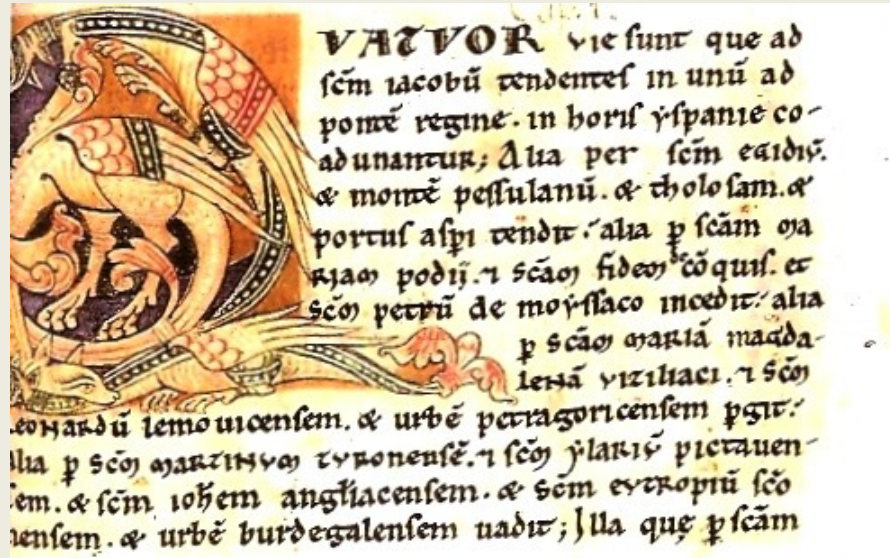 QVATVOR vie sunt que ad
scm̄ iacobū tendentes in unū ad
pontē regine. in horis yspanie co-
adunantur; Alia per scm̄ egidiū.
& montē pessulanū. & tholosam. &
portus aspi tendit: alia p̱ scām ma
riam podii. ⁊ scām fidem de cōquis. et
scm̄ petrū de moyssaco incedit: alia
p̱ scām mariā magda-
lenā viziliaci. ⁊ scm̄
leonardū lemouicensem. & urbē petragoricensem p̱git:
alia p̱ scm̄ martinum turonensē. ⁊ scm̄ ylariū pictauen-
em. & scm̄ ioh̄em angliacensem. & scm̄ eutropiū scō
nensem. & urbē burdegalensem uadit; Illa quę p̱ scām